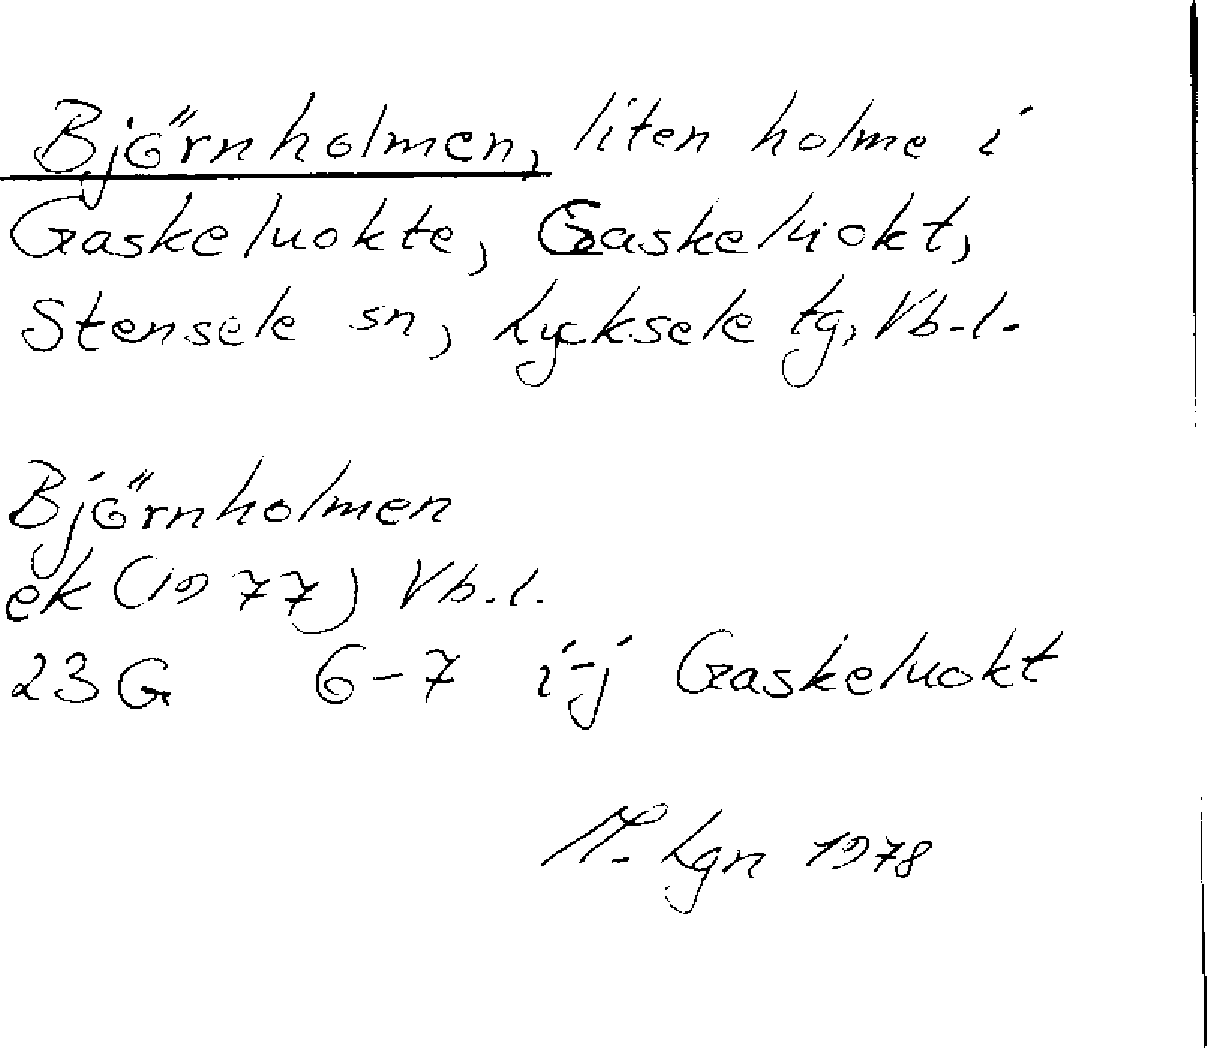 Björnholmen, liten holme i
Gaskeluokte, Gaskeluokt,
Stensele sn, Lycksele tg, Vb.l.
Björnholmen
ek (1977) Vb.l.
23G 6-7 i-j Gaskeluokt
Lgn 1978